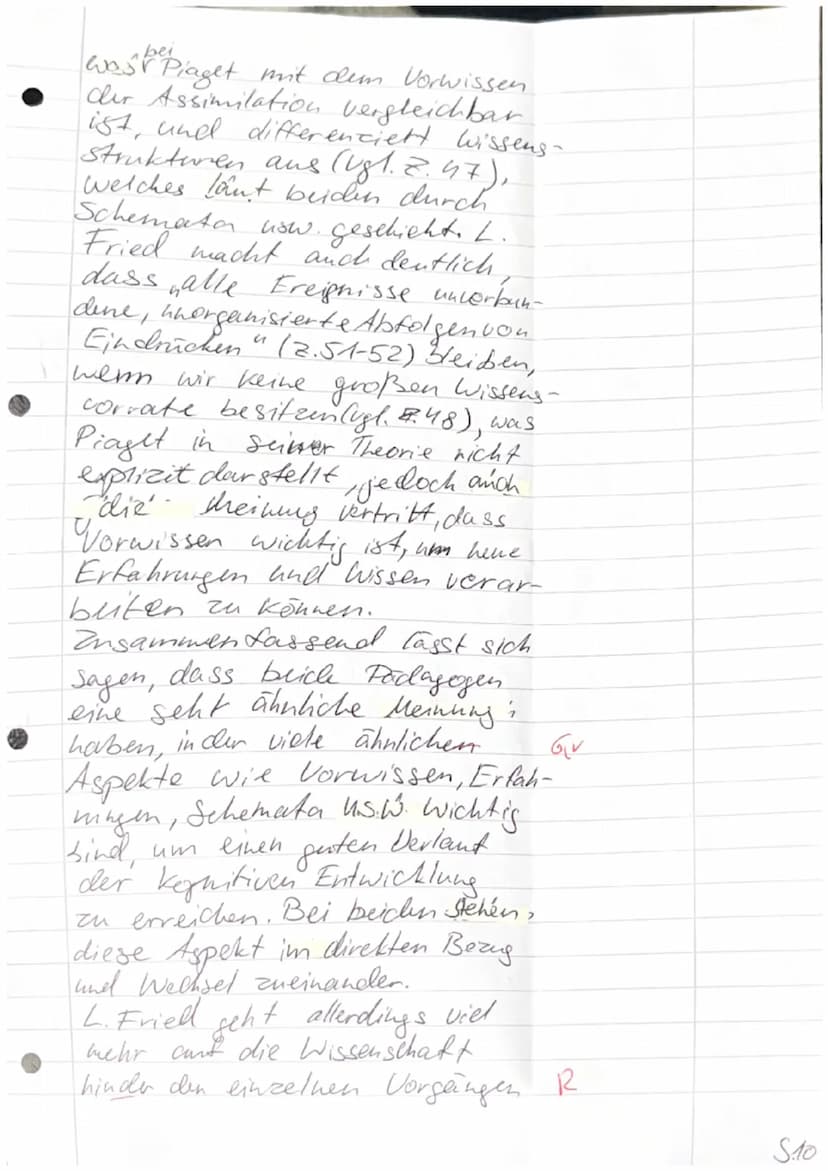 was bei Piaget mit dem Vorwissen
der Assimilation vergleichbar
ist, und differenziert Wissens-
strukturen aus (vgl. Z. 47),
welches laut beiden durch
Schemata usw. geschieht. L.
Fried macht auch deutlich,
dass „alle Ereignisse unverbun-
dene, unorganisierte Abfolgen von
Eindrücken" (Z. 51-52) bleiben,
wenn wir keine großen Wissens-
vorräte besitzen (vgl. Z. 48), was
Piaget in seiner Theorie nicht
explizit darstellt, jedoch auch
die Meinung vertritt, dass
Vorwissen wichtig ist, um neue
Erfahrungen und Wissen verar-
beiten zu können.
Zusammenfassend lässt sich
sagen, dass beide Pädagogen
eine sehr ähnliche Meinung
haben, in der viele ähnlichen Gr
Aspekte wie Vorwissen, Erfah-
rungen, Schemata u.s.w. wichtig
sind, um einen guten Verlauf
der kognitiven Entwicklung
zu erreichen. Bei beiden stehen
diese Aspekt im direkten Bezug
und Wechsel zueinander.
L. Fried geht allerdings viel
mehr auf die Wissenschaft
hinder den einzelnen Vorgängen R
S.10